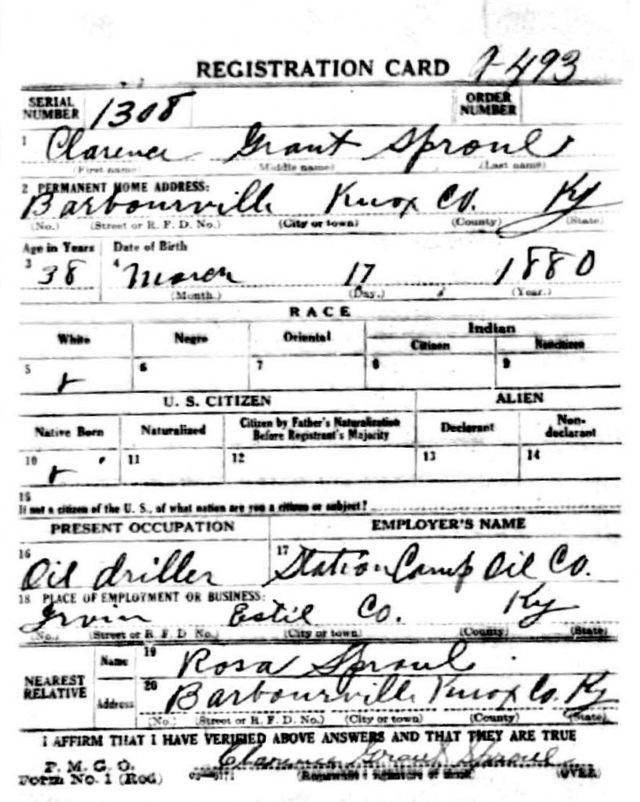 REGISTRATION CARD
SERIAL NUMBER 1308 ORDER NUMBER
1 Clarence Grant Sproul
(First name) (Middle name) (Last name)
2 PERMANENT HOME ADDRESS:
Barbourville Knox Co. Ky
(No.) (Street or R. F. D. No.) (City or town) (County) (State)
Age in Years Date of Birth
3 38 4 March 17 1880
(Month.) (Day.) (Year.)
RACE
White Negro Oriental Indian
Citizen Noncitizen
5 6 7 8 9
U. S. CITIZEN ALIEN
Native Born Naturalized Citizen by Father's Naturalization Before Registrant's Majority Declarant Non-declarant
10 11 12 13 14
15
If not a citizen of the U. S., of what nation are you a citizen or subject?
PRESENT OCCUPATION EMPLOYER'S NAME
16 Oil driller 17 Station Camp Oil Co.
18 PLACE OF EMPLOYMENT OR BUSINESS:
Irvin Estil Co. Ky
(No.) (Street or R. F. D. No.) (City or town) (County) (State)
NEAREST RELATIVE Name 19 Rosa Sproul
Address 20 Barbourville Knox Co. Ky
(No.) (Street or R. F. D. No.) (City or town) (County) (State)
I AFFIRM THAT I HAVE VERIFIED ABOVE ANSWERS AND THAT THEY ARE TRUE
P. M. G. O.
Form No. 1 (Red) Clarence Grant Sproul (OVER)